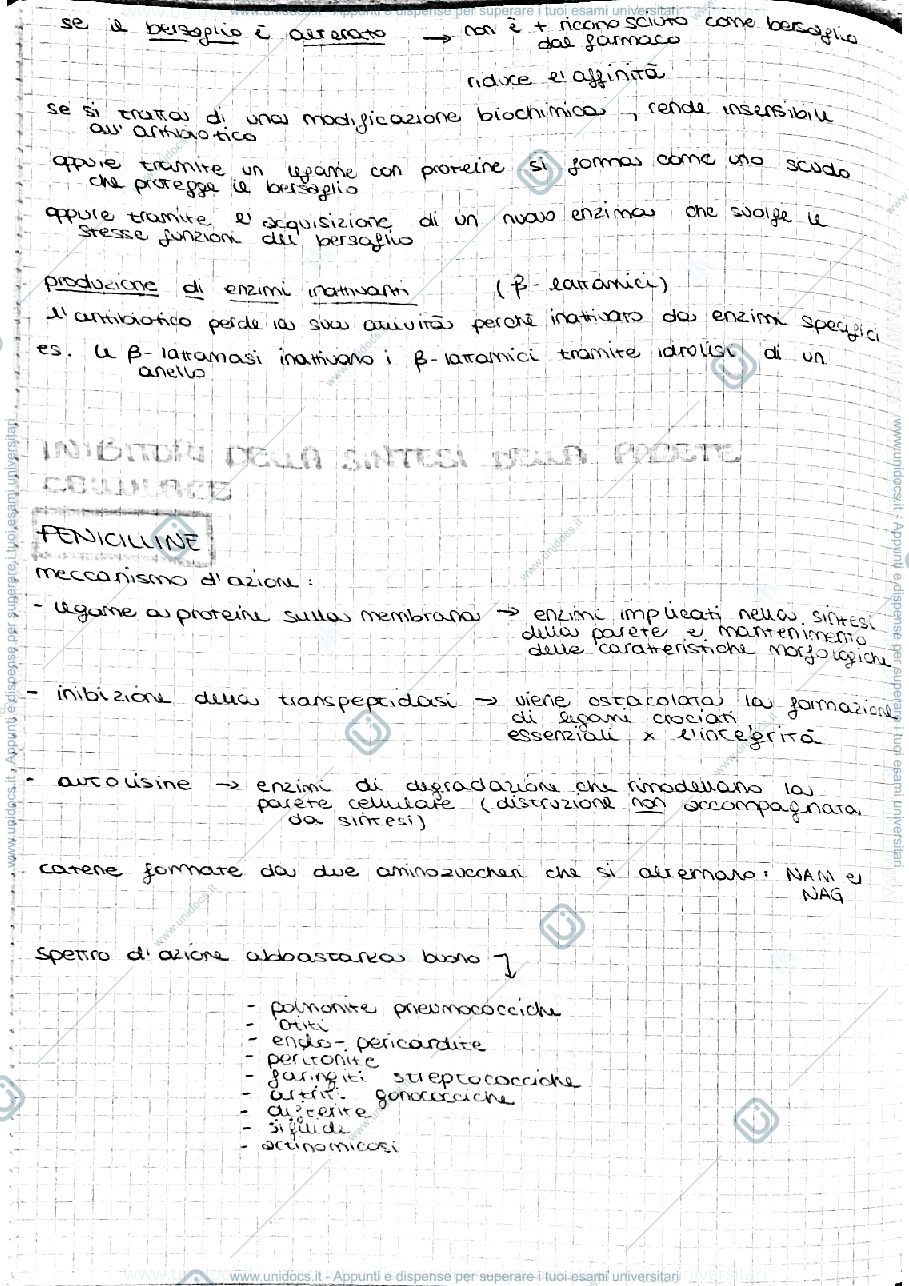 www.unidocs.it - Appunti e dispense per superare i tuoi esami universitari
se il bersaglio è alterato → non è + riconosciuto come bersaglio
dal farmaco
riduce l'affinità
se si tratta di una modificazione biochimica, rende insensibile
all'antibiotico
oppure tramite un legame con proteine si forma come uno scudo
che protegge il bersaglio
oppure tramite l'acquisizione di un nuovo enzima che svolge le
stesse funzioni del bersaglio
produzione di enzimi inattivanti (β-lattamici)
l'antibiotico perde la sua attività perché inattivato da enzimi specifici
es. le β-lattamasi inattivano i β-lattamici tramite idrolisi di un
anello
INIBITORI DELLA SINTESI DELLA PARETE
CELLULARE
PENICILLINE
meccanismo d'azione:
- legame a proteine sulla membrana → enzimi implicati nella sintesi
della parete e mantenimento
delle caratteristiche morfologiche
- inibizione della transpeptidasi → viene ostacolata la formazione
di legami crociati
essenziali x l'integrità
- autolisine → enzimi di degradazione che rimodellano la
parete cellulare (distruzione non accompagnata
da sintesi)
catene formate da due aminozuccheri che si alternano: NAM e
NAG
spettro d'azione abbastanza buono ↓
- polmonite pneumococciche
- otiti
- endo-pericardite
- peritonite
- faringiti streptococciche
- artriti gonococciche
- difterite
- sifilide
- actinomicosi
www.unidocs.it - Appunti e dispense per superare i tuoi esami universitari